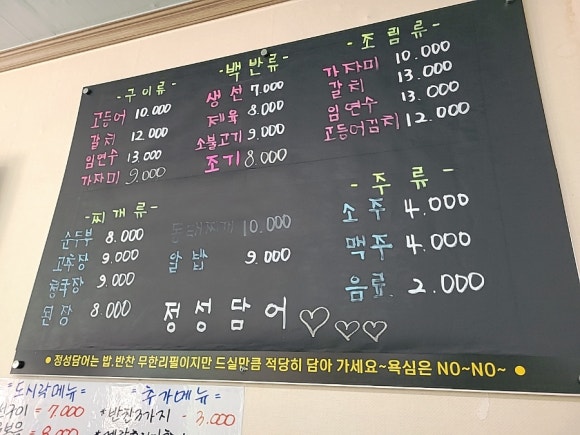 -구이류-
고등어 10.000
갈치 12.000
임연수 13.000
가자미 9.000
-백반류-
생선 7.000
제육 8.000
소불고기 9.000
조기 8.000
-조림류-
가자미 10.000
갈치 13.000
임연수 13.000
고등어김치 12.000
-찌개류-
순두부 8.000
고추장 9.000
청국장 9.000
된장 8.000
동태찌개 10.000
알밥 9.000
-주류-
소주 4.000
맥주 4.000
음료 2.000
정성담어
정성담어는 밥,반찬 무한리필이지만 드실만큼 적당히 담아 가세요~욕심은 NO~NO~
"도시락메뉴"
선구이 = 7.000
볶음 = 8.000
"추가메뉴"
*반찬3가지 - 3.000